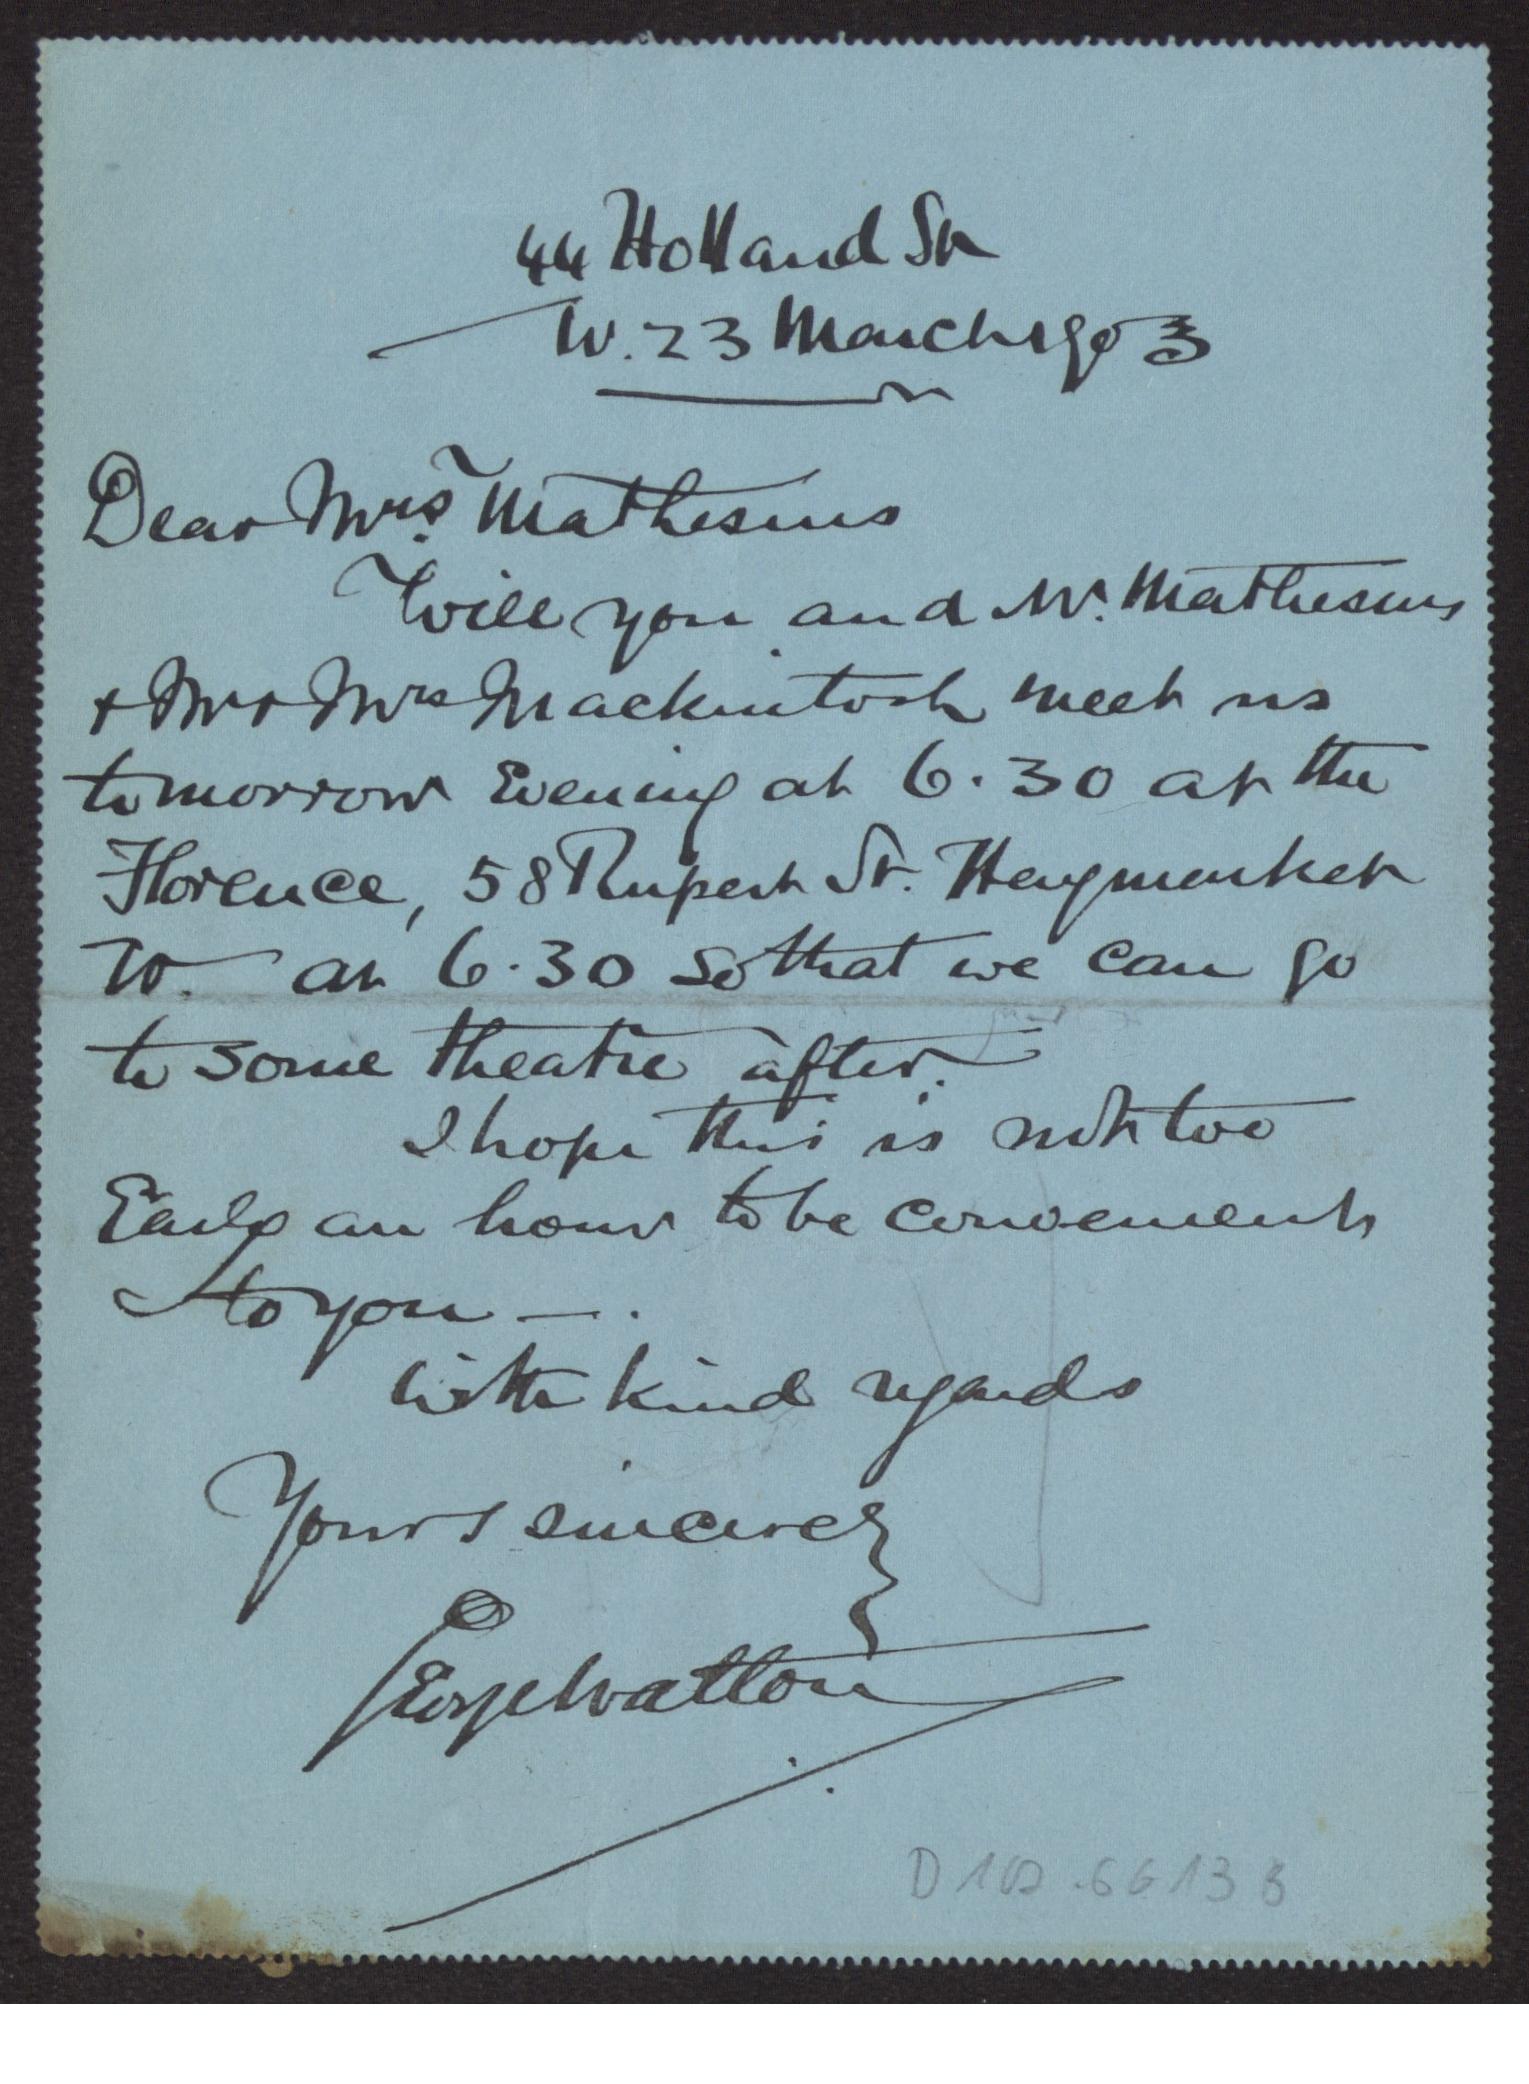 44 Holland St
W. 23 March 1903
Dear Mrs. Mathesius
Will you and Mr. Mathesius
+ Mr + Mrs Mackintosh meet us
tomorrow Evening at 6.30 at the
Florence, 58 Rupert St. Haymarket
W. at 6.30 so that we can go
to some theatre after.
I hope this is not too
Early an hour to be convenient
to you —.
With kind regards
Yours sincerely
George Walton
D 102.6613 B